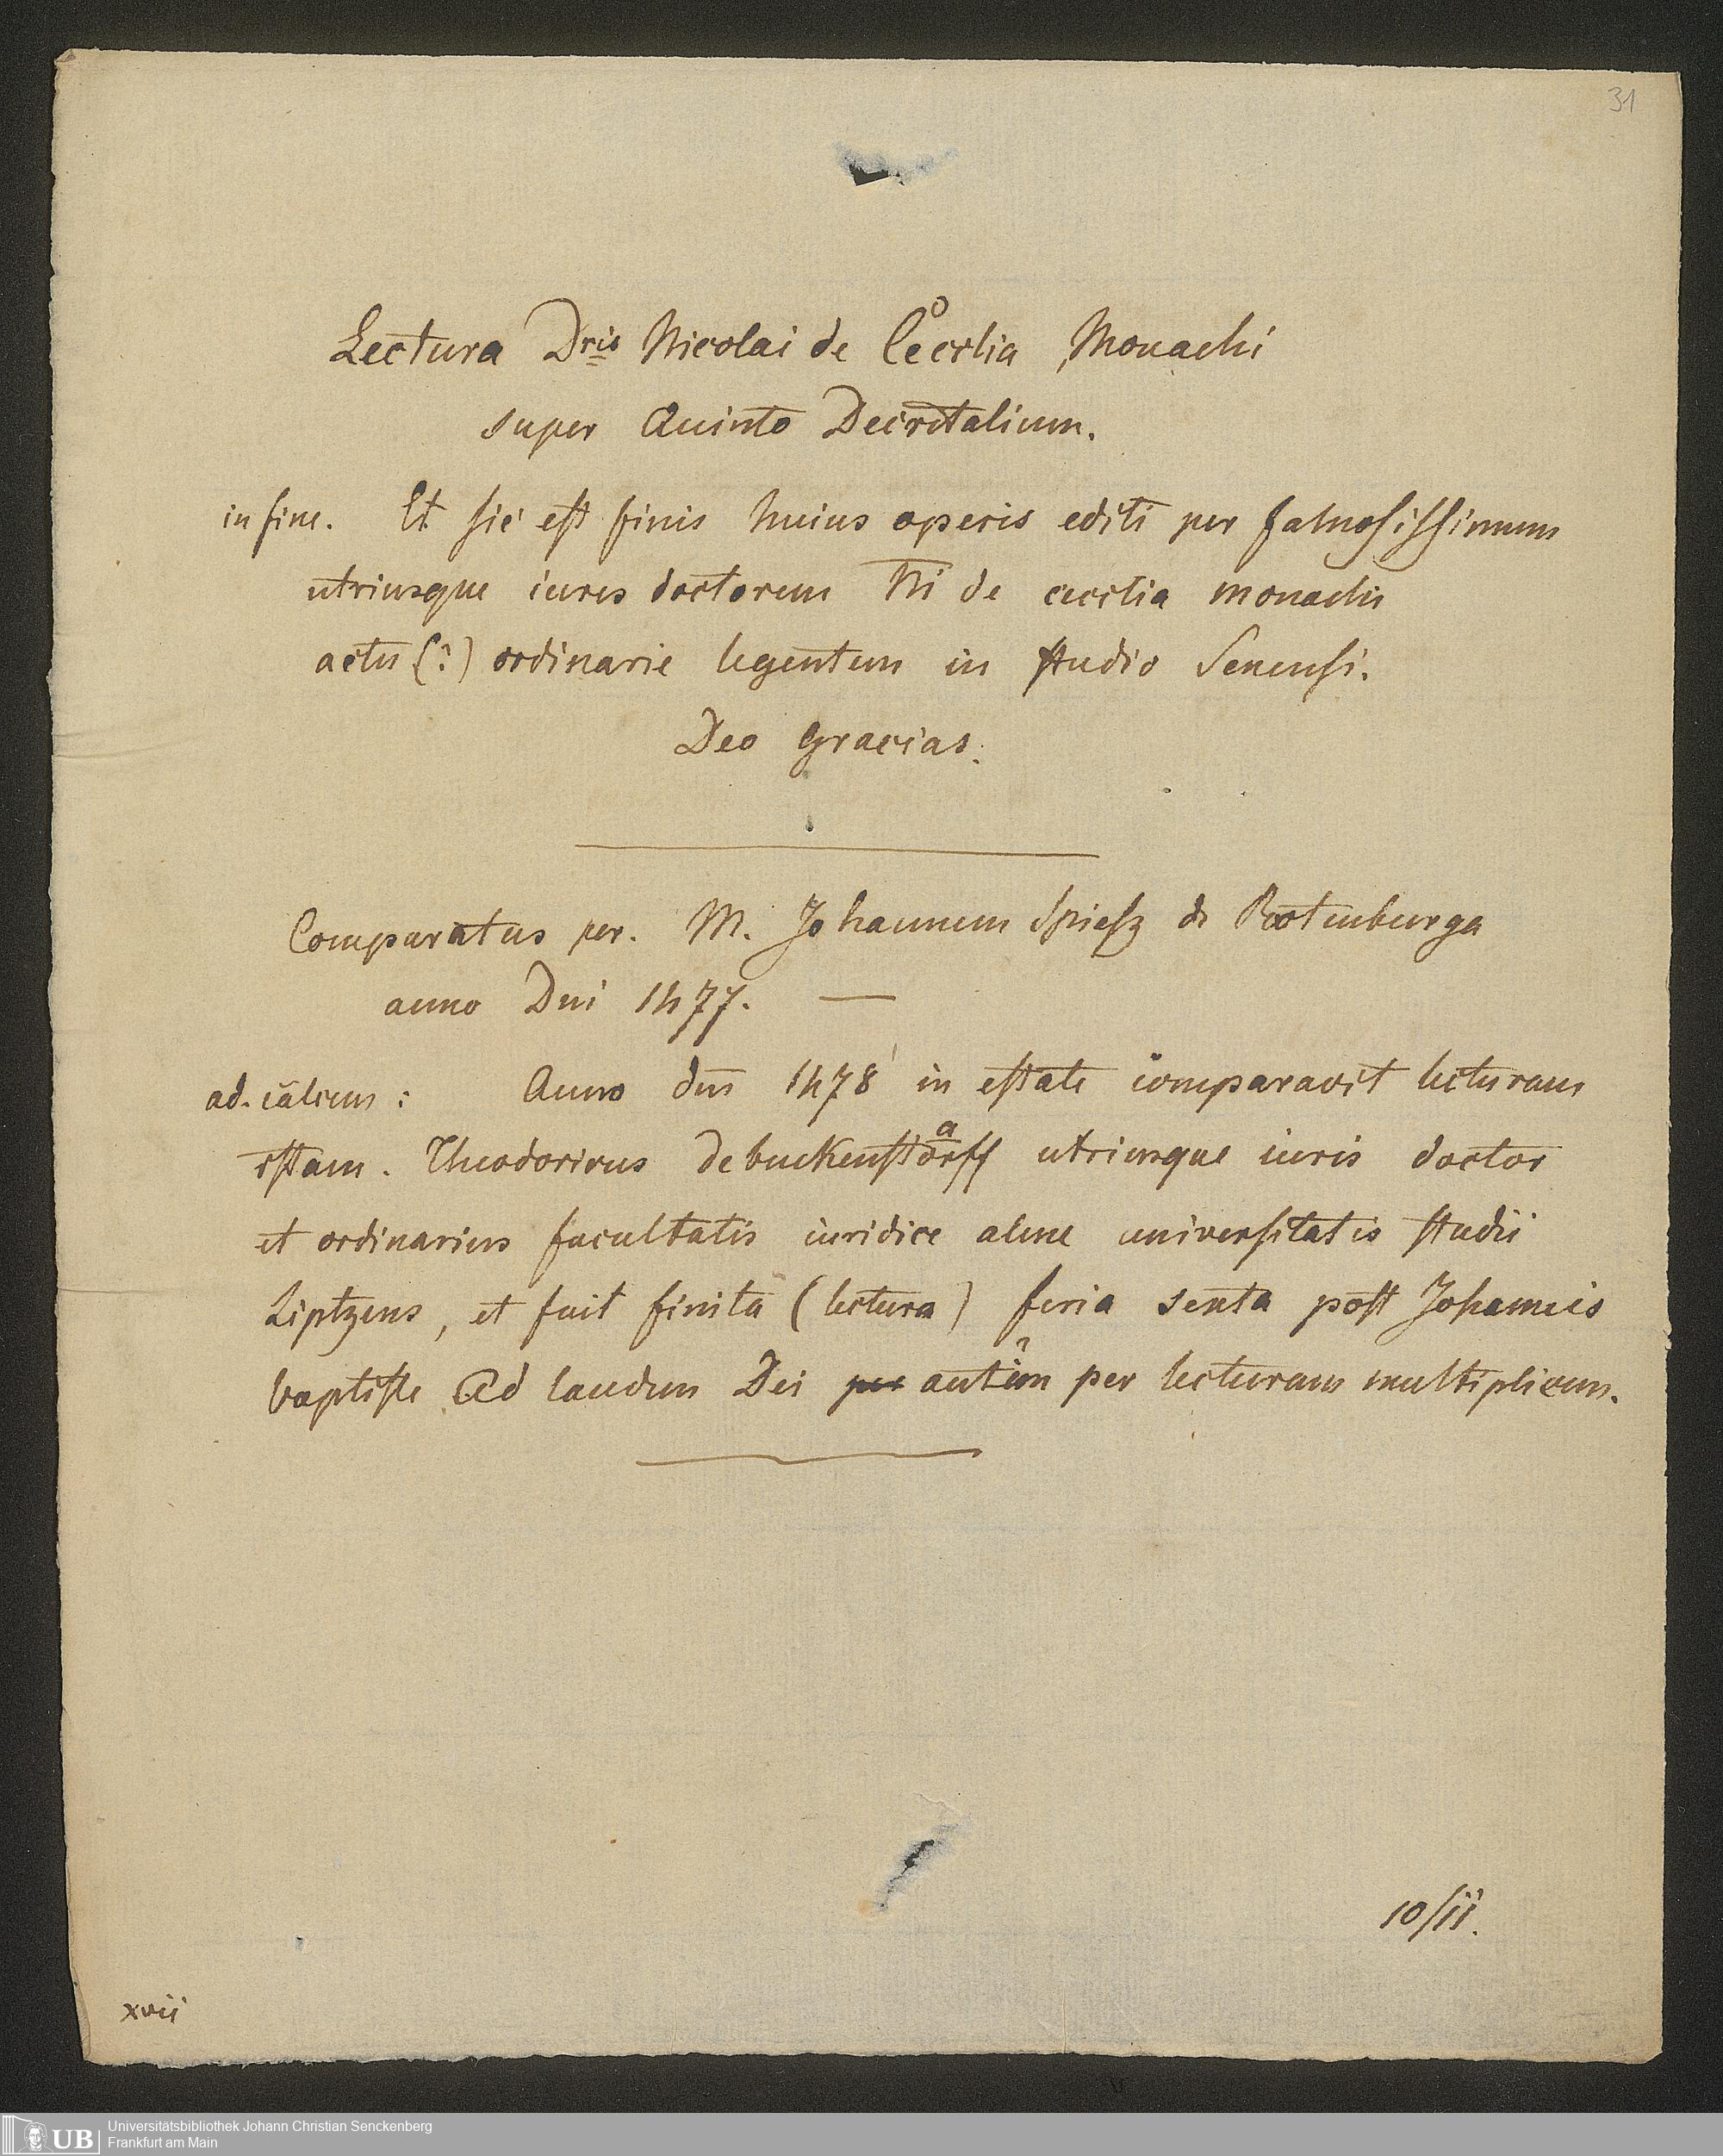 31
Lectura Dris Nicolai de Cecilia Monachi
super Quinto Decretalium.
in fine. Et sic est finis huius operis editi per famosissimum
utriusque iuris doctorem Ni de cecilia monachi
actu (?) ordinarie legentem in studio Senensi.
Deo Gracias.
Comparatus per. M. Johannem Spiesz de Rotenburga
anno Dni 1477. —
ad. calcem: Anno dni 1478 in estate comparavit lecturam
istam. Theodoricus de buckenstorff utriusque iuris doctor
et ordinarius facultatis iuridice alme universitatis studii
Liptzens, et fuit finita (lectura) feria sexta post Johannis
baptiste Ad laudem Dei per autem per lecturam multiplicem.
10/ii.
xvii
UB Universitätsbibliothek Johann Christian Senckenberg
Frankfurt am Main